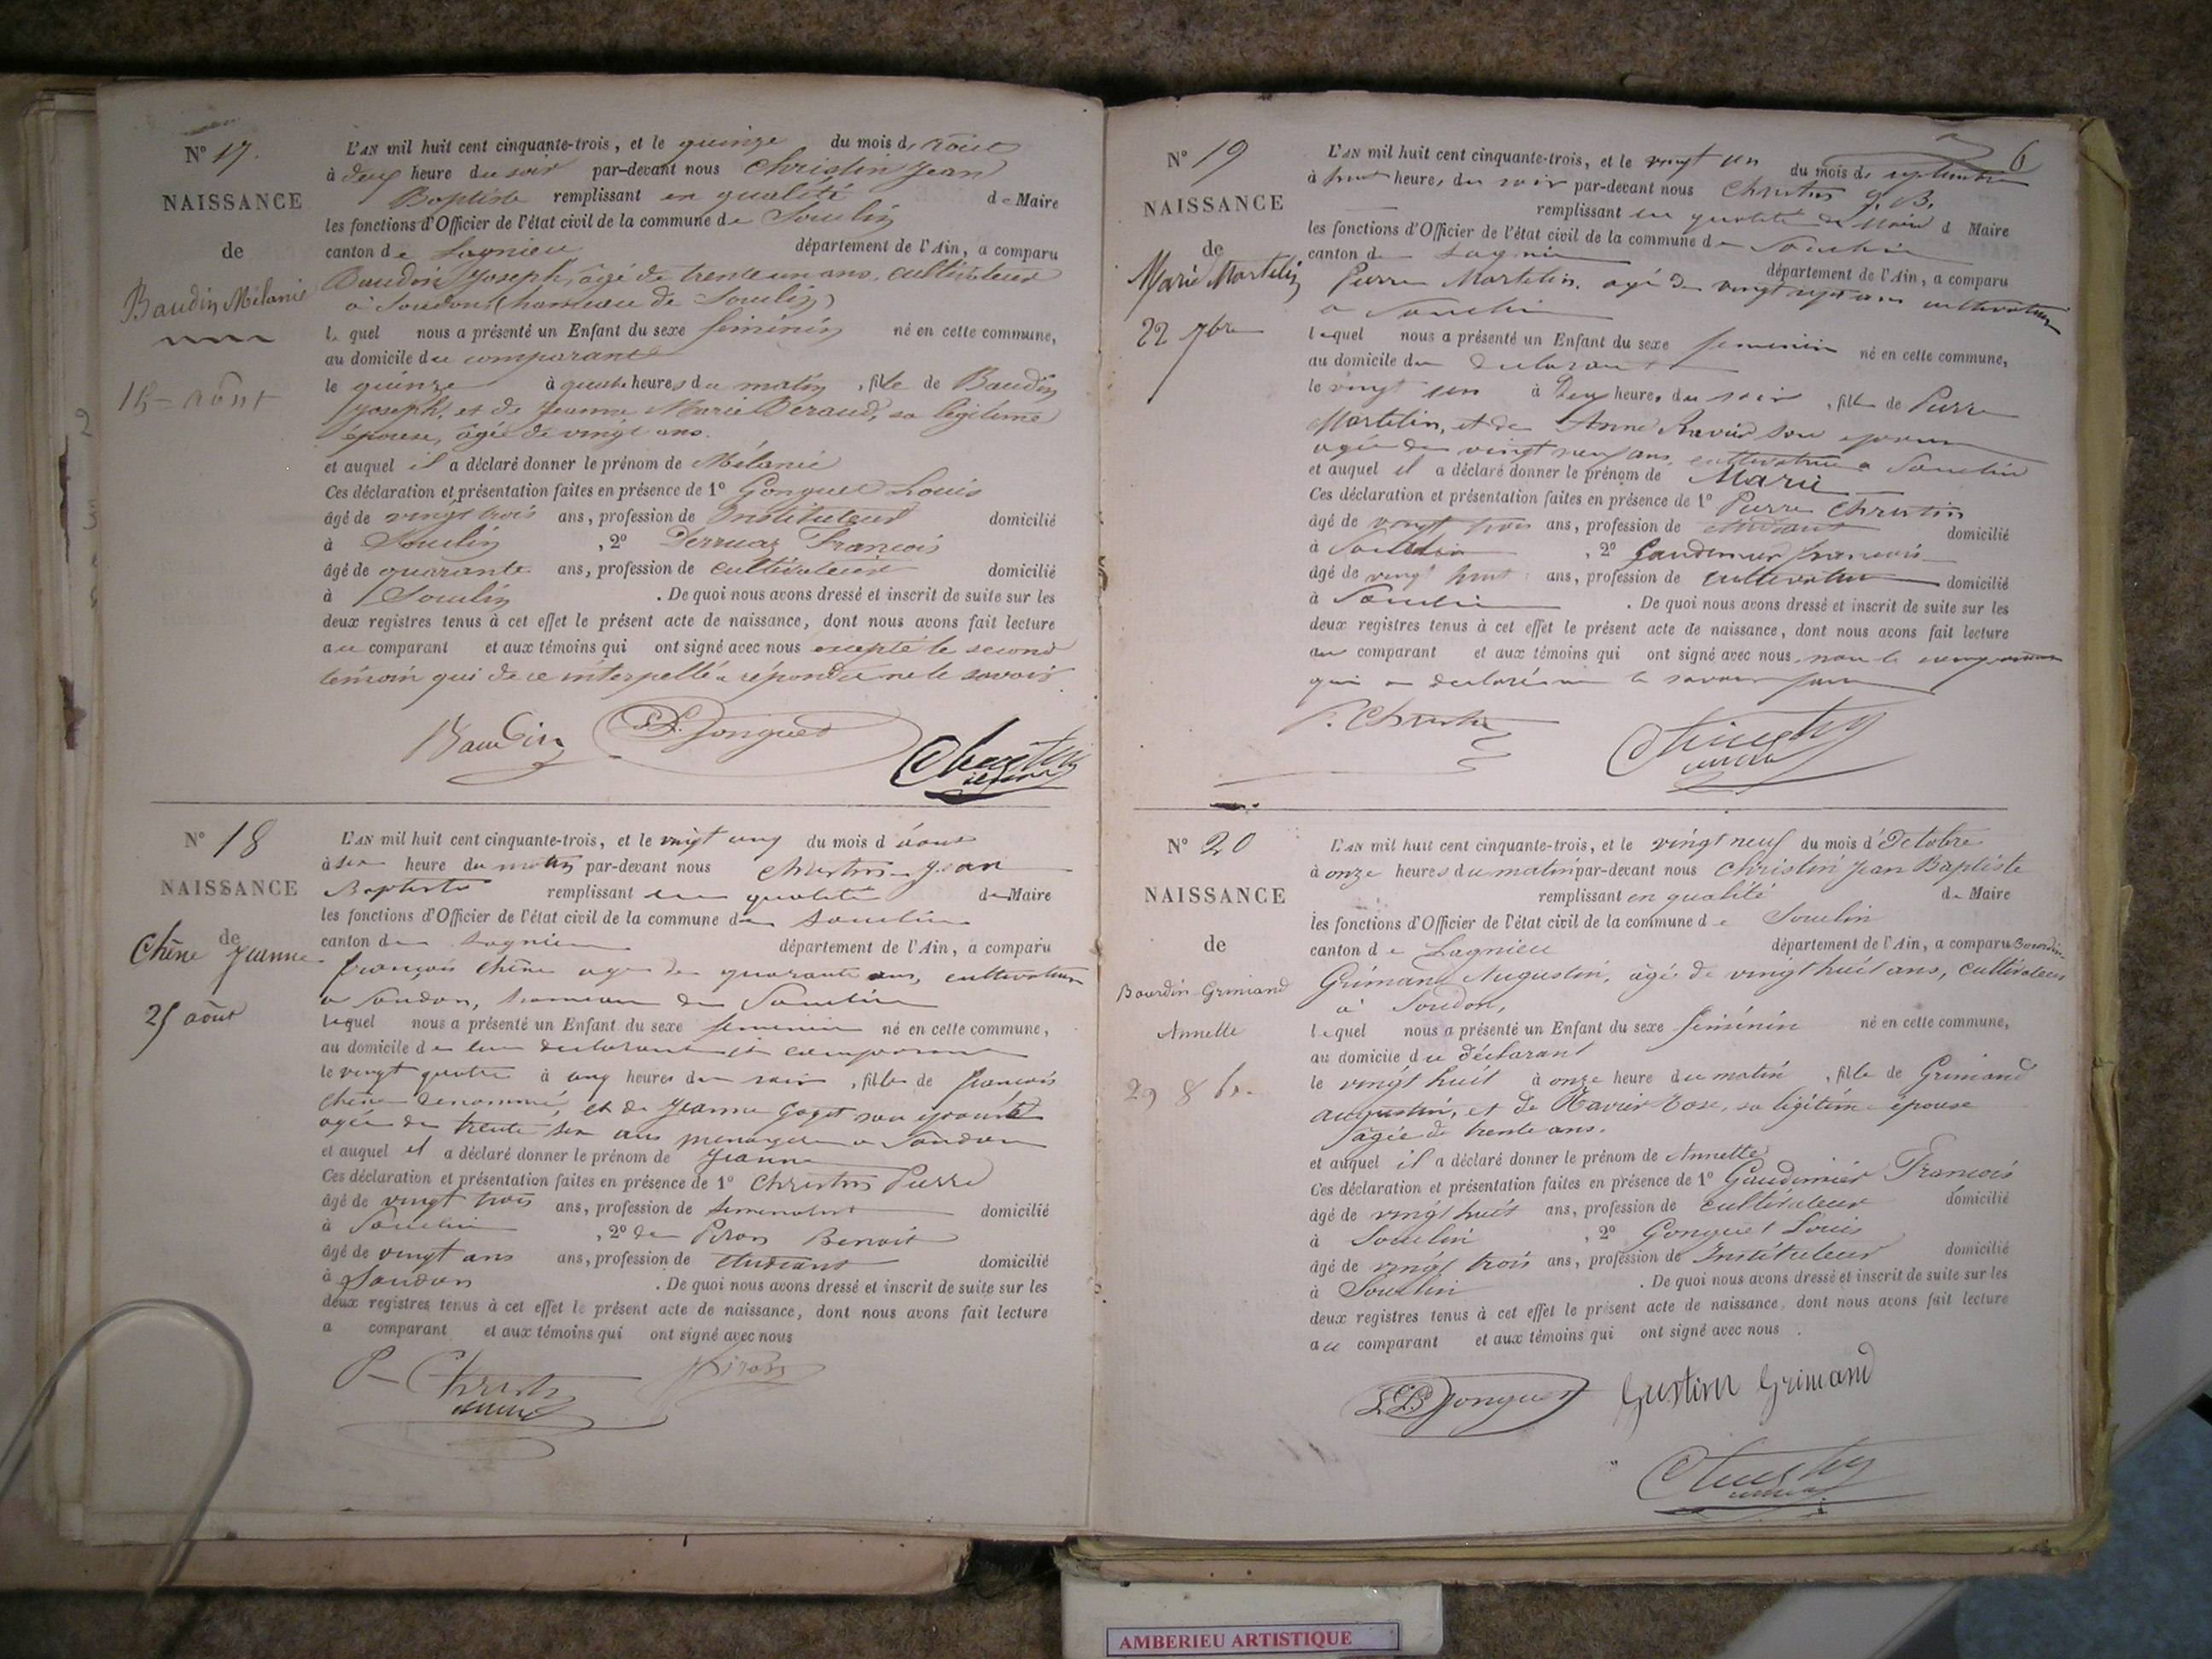 N° 17.
NAISSANCE
de
Baudin Mélanie
15 août
L'AN mil huit cent cinquante-trois, et le quinze du mois d'août
à deux heure du soir par-devant nous Christin Jean
Baptiste remplissant en qualité de Maire
les fonctions d'Officier de l'état civil de la commune de Souclin
canton de Lagnieu département de l'Ain, a comparu
Baudin Joseph, âgé de trente un ans, cultivateur
à Soudon (hameau de Souclin)
lequel nous a présenté un Enfant du sexe féminin né en cette commune,
au domicile du comparant
le quinze à quatre heures du matin, fille de Baudin
Joseph, et de Jeanne Marie Deraud, sa légitime
épouse, âgée de vingt ans.
et auquel il a déclaré donner le prénom de Mélanie
Ces déclaration et présentation faites en présence de 1° Gonguet Louis
âgé de vingt trois ans, profession de Instituteur domicilié
à Souclin, 2° Derruaz François
âgé de quarante ans, profession de cultivateur domicilié
à Souclin. De quoi nous avons dressé et inscrit de suite sur les
deux registres tenus à cet effet le présent acte de naissance, dont nous avons fait lecture
au comparant et aux témoins qui ont signé avec nous excepté le second
témoin qui de ce interpellé a répondu ne le savoir
Baudin Gonguet Christin
N° 18
NAISSANCE
de
Chêne Jeanne
25 août
L'AN mil huit cent cinquante-trois, et le vingt cinq du mois d'août
à six heure du matin par-devant nous Christin Jean
Baptiste remplissant en qualité de Maire
les fonctions d'Officier de l'état civil de la commune de Souclin
canton de Lagnieu département de l'Ain, a comparu
françois Chêne agé de quarante ans, cultivateur
a Soudon, hameau de Souclin
lequel nous a présenté un Enfant du sexe feminin né en cette commune,
au domicile de lui declarant et comparant
le vingt quatre à cinq heures du soir, fille de françois
Chêne denommé, et de Jeanne Goget son épouse
agée de trente six ans menagere a Soudon
et auquel il a déclaré donner le prénom de Jeanne
Ces déclaration et présentation faites en présence de 1° Christin Pierre
âgé de vingt trois ans, profession de domicilié
à Souclin, 2° de Piron Benoit
âgé de vingt ans ans, profession de etudiant domicilié
à Soudon. De quoi nous avons dressé et inscrit de suite sur les
deux registres tenus à cet effet le présent acte de naissance, dont nous avons fait lecture
a comparant et aux témoins qui ont signé avec nous
P. Christin Piron
6
N° 19
NAISSANCE
de
Marie Martelin
22 7bre
L'AN mil huit cent cinquante-trois, et le vingt un du mois de septembre
à huit heures du soir par-devant nous Christin J. B.
remplissant en qualité de Maire d Maire
les fonctions d'Officier de l'état civil de la commune de Souclin
canton de Lagnieu département de l'Ain, a comparu
Pierre Martelin, agé de vingt sept ans cultivateur
a Souclin
lequel nous a présenté un Enfant du sexe feminin né en cette commune,
au domicile du declarant
le vingt un à deux heures du soir, fille de Pierre
Martelin, et de Anne Ravier son epouse
agée de vingt neuf ans, cultivatrice a Souclin
et auquel il a déclaré donner le prénom de Marie
Ces déclaration et présentation faites en présence de 1° Pierre Christin
âgé de vingt trois ans, profession de etudiant domicilié
à Souclin, 2° Gaudimier françois
âgé de vingt huit ans, profession de cultivateur domicilié
à Souclin. De quoi nous avons dressé et inscrit de suite sur les
deux registres tenus à cet effet le présent acte de naissance, dont nous avons fait lecture
au comparant et aux témoins qui ont signé avec nous, non le comparant
qui a declaré ne le savoir faire
P. Christin Christin
N° 20
NAISSANCE
de
Bourdin-Grimand
Annette
29 8b.
L'AN mil huit cent cinquante-trois, et le vingt neuf du mois d'Octobre
à onze heures du matin par-devant nous Christin Jean Baptiste
remplissant en qualité de Maire
les fonctions d'Officier de l'état civil de la commune de Souclin
canton de Lagnieu département de l'Ain, a comparu Bourdin
Grimand Augustin, âgé de vingt huit ans, cultivateur
à Soudon,
lequel nous a présenté un Enfant du sexe féminin né en cette commune,
au domicile du déclarant
le vingt huit à onze heure du matin, fille de Grimand
augustin, et de Ravier Rose, sa légitime épouse
âgée de trente ans.
et auquel il a déclaré donner le prénom de Annette
Ces déclaration et présentation faites en présence de 1° Gaudimier François
âgé de vingt huit ans, profession de cultivateur domicilié
à Souclin, 2° Gonguet Louis
âgé de vingt trois ans, profession de Instituteur domicilié
à Souclin. De quoi nous avons dressé et inscrit de suite sur les
deux registres tenus à cet effet le présent acte de naissance, dont nous avons fait lecture
au comparant et aux témoins qui ont signé avec nous.
Gonguet Gustin Grimand
Christin
AMBERIEU ARTISTIQUE